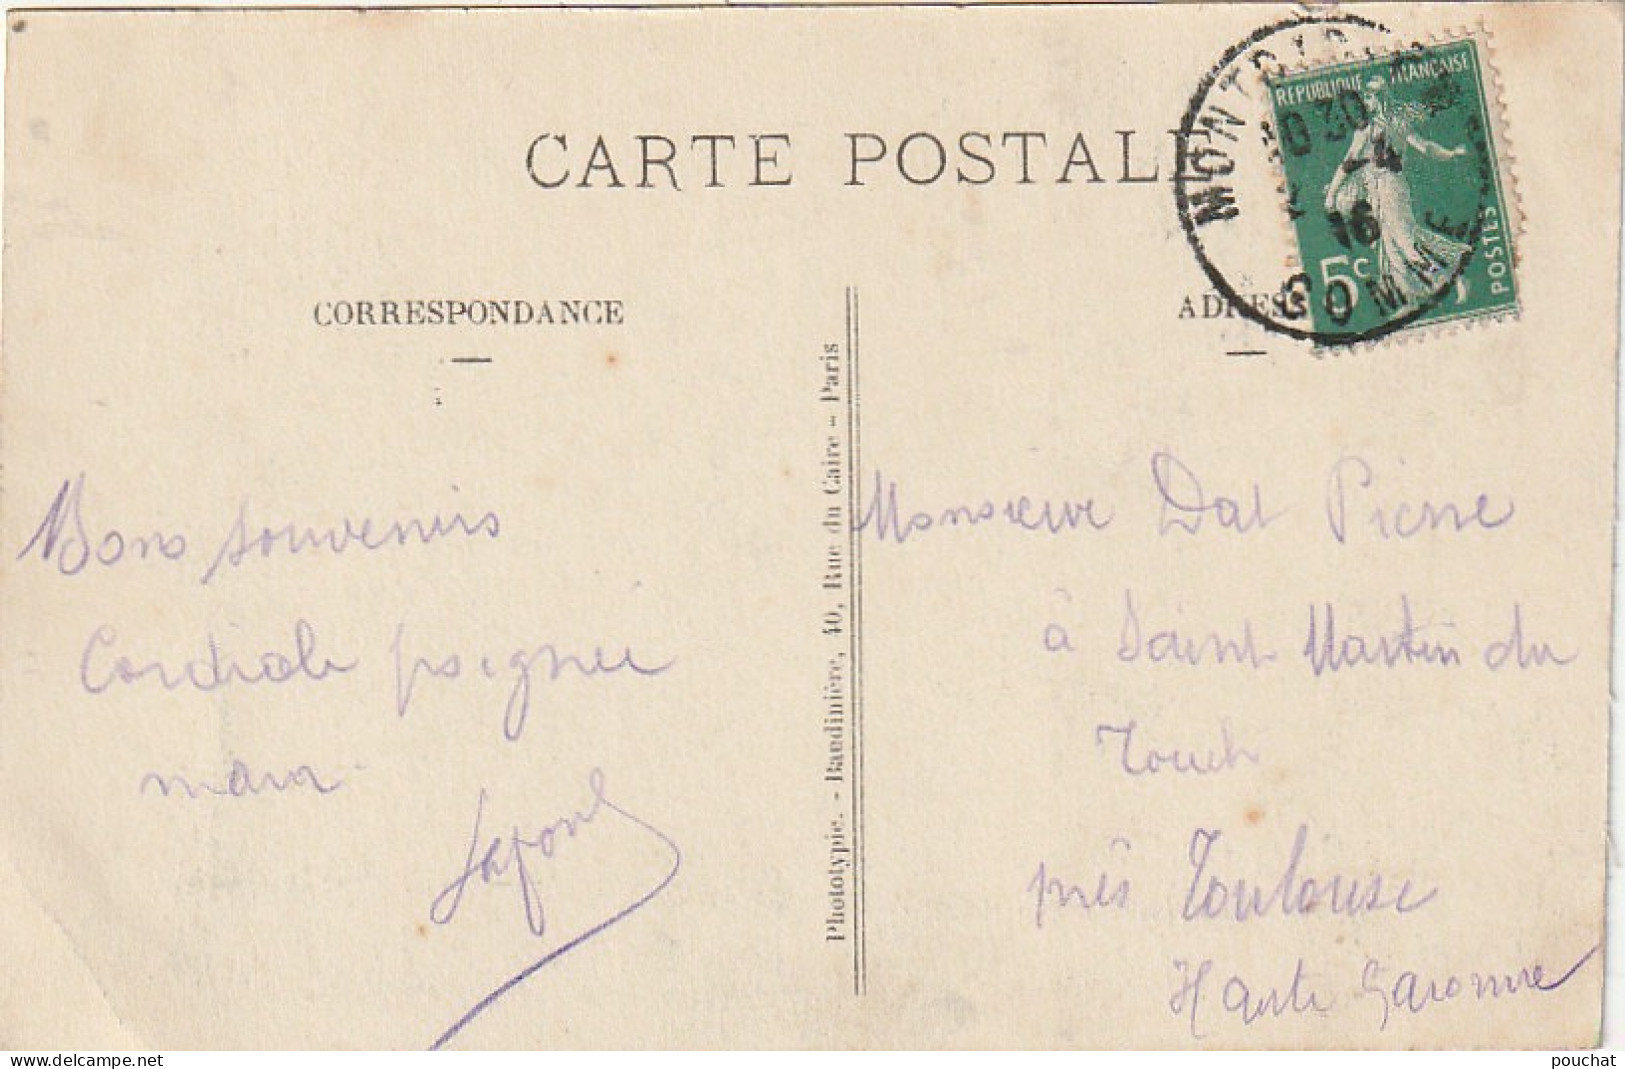 CARTE POSTALE
CORRESPONDANCE
ADRESS
RÉPUBLIQUE FRANÇAISE
POSTES
5c
MONTDIDIER
SOMME
30
-4
16
Bons souvenirs
Cordiale poignée
main.
Lafont
Phototypie. - Baudinière, 40, Rue du Caire - Paris
Monsieur Dat Pierre
à Saint Martin du
Touch
près Toulouse
Haute Garonne
pouchat
www.delcampe.net